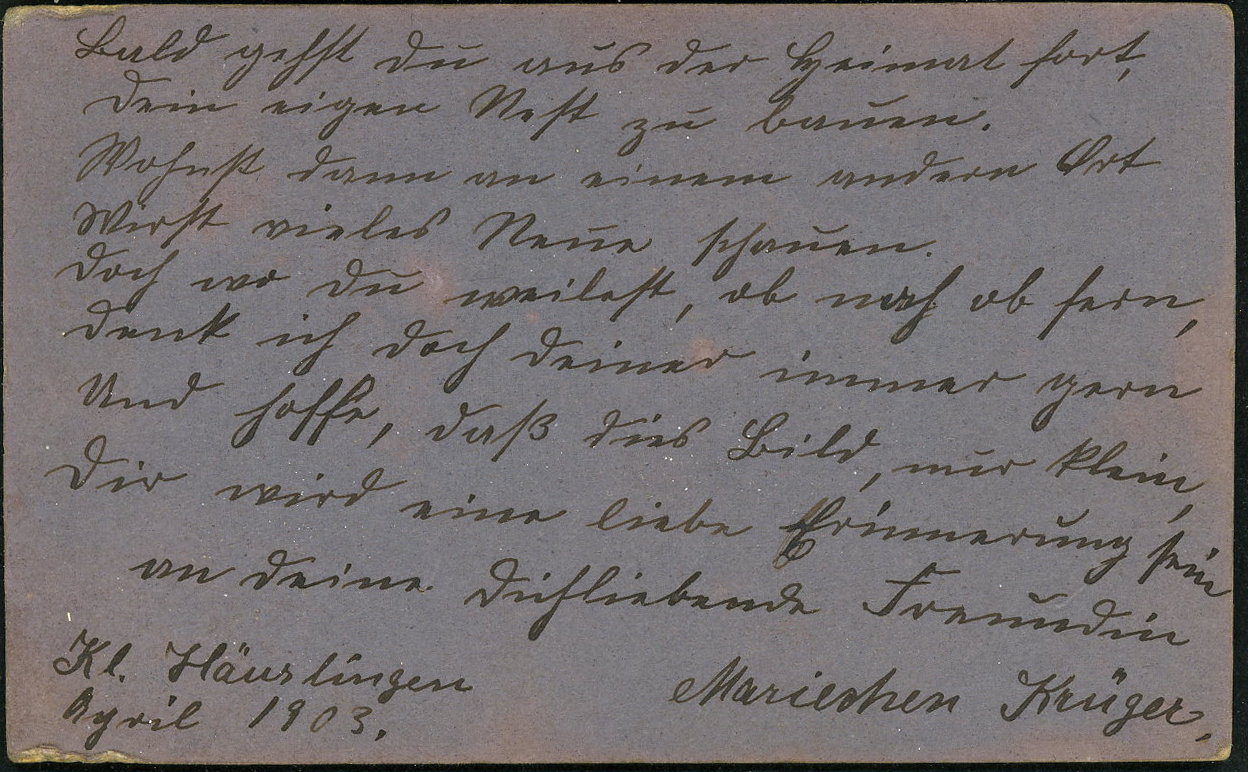 Bald gehst du aus der Heimat fort,
Dein eigen Nest zu bauen.
Wohnst dann an einem andern Ort
Wirst vieles Neue schauen.
Doch wo du weilest, ob nah ob fern,
denk ich doch deiner immer gern
Und hoffe, daß dies Bild, nur klein,
Dir wird eine liebe Erinnerung sein
an deine dichliebende Freundin
Kl. Häuslingen
Mariechen Krüger.
April 1903.